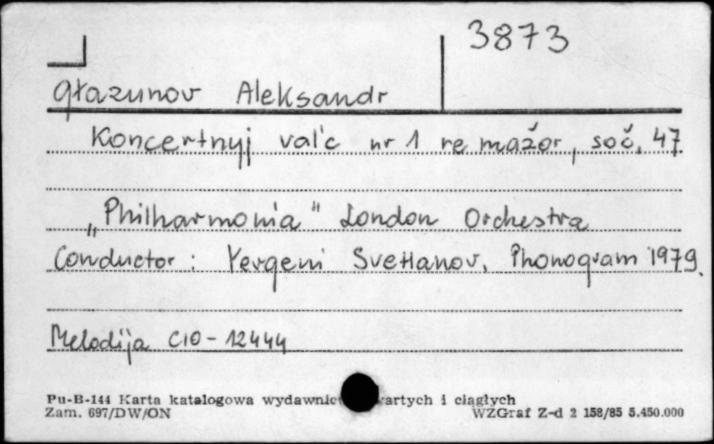 3873
Głazunov Aleksandr
Koncertnyj val'c nr 1 re mažor, soč. 47
„Philharmonia" London Orchestra
Conductor: Yevgeni Svetlanov. Phonogram 1979.
Melodija C10-12444
Pu-B-144 Karta katalogowa wydawnic artych i ciągłych
Zam. 697/DW/ON WZGraf Z-d 2 158/85 5.450.000